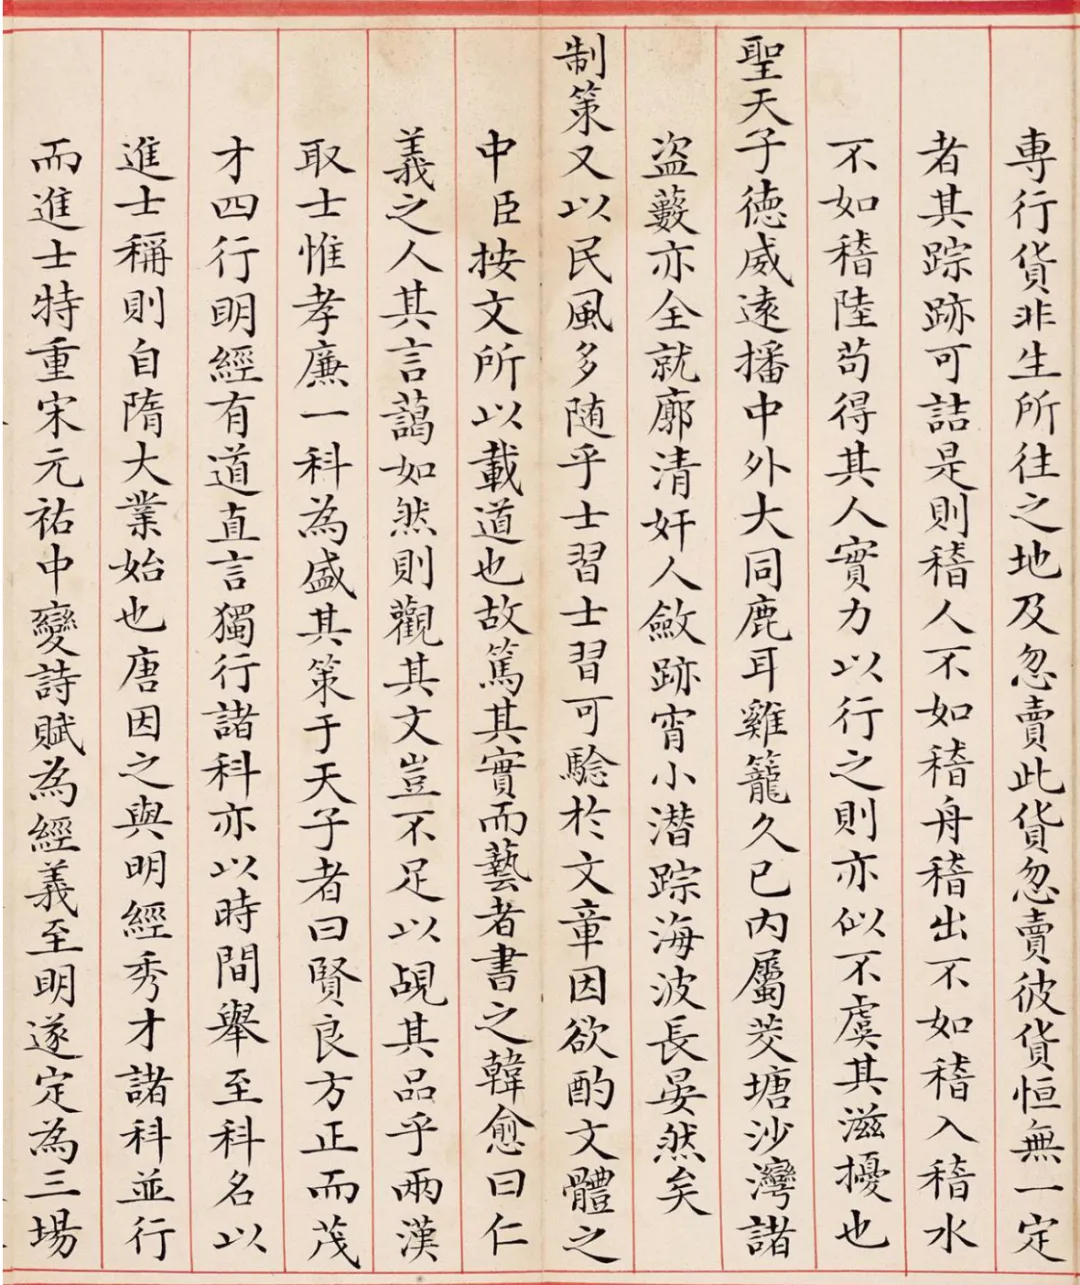 専行貨非生所往之地及忽賣此貨忽賣彼貨恒無一定
者其踪跡可詰是則稽人不如稽舟稽出不如稽入稽水
不如稽陸苟得其人實力以行之則亦似不虞其滋擾也
聖天子德威遠播中外大同鹿耳雞籠久已內屬茭塘沙灣諸
盜藪亦全就廓清奸人斂跡宵小潛踪海波長晏然矣
制策又以民風多随乎士習士習可騐於文章因欲酌文體之
中臣按文所以載道也故篤其實而藝者書之韓愈曰仁
義之人其言藹如然則觀其文豈不足以覘其品乎兩漢
取士惟孝廉一科為盛其策于天子者曰賢良方正而茂
才四行明經有道直言獨行諸科亦以時間舉至科名以
進士稱則自隋大業始也唐因之與明經秀才諸科並行
而進士特重宋元祐中變詩賦為經義至明遂定為三場